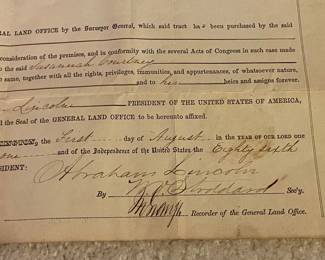 RAL LAND OFFICE by the Surveyor General, which said tract has been purchased by the said
consideration of the premises, and in conformity with the several Acts of Congress in such case made
the said Susannah Courtney
he same, together with all the rights, privileges, immunities, and appurtenances, of whatsoever nature,
and to her heirs and assigns forever.
Lincoln PRESIDENT OF THE UNITED STATES OF AMERICA,
the Seal of the GENERAL LAND OFFICE to be hereunto affixed.
INGTON, the First day of August in the YEAR OF OUR LORD one
one and of the Independence of the United States the Eighty sixth
SIDENT: Abraham Lincoln
By W. O. Stoddard Sec'y.
Recorder of the General Land Office.